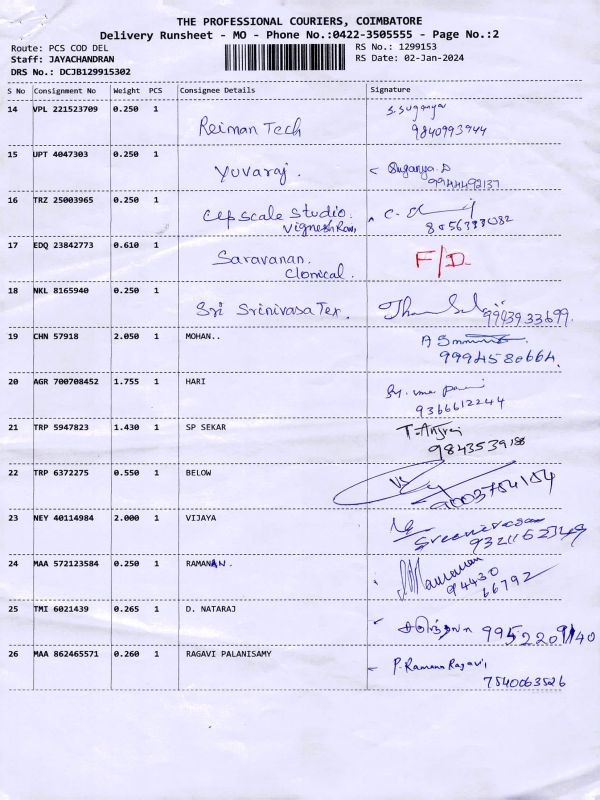 THE PROFESSIONAL COURIERS, COIMBATORE
Delivery Runsheet - MO - Phone No.:0422-3505555 - Page No.:2
Route: PCS COD DEL
RS No.: 1299153
Staff: JAYACHANDRAN
RS Date: 02-Jan-2024
DRS No.: DCJB129915302
S No Consignment No Weight PCS Consignee Details Signature
14 VPL 221523709 0.250 1 Reiman Tech S. Suganya
9840993944
15 UPT 4047303 0.250 1 Yuvaraj. Suganya.D
9944492137
16 TRZ 25003965 0.250 1 Scale Studio.
8056333082
17 EDQ 23842773 0.610 1 Saravanan. F/D.
Clonical.
18 NKL 8165940 0.250 1 Sri Srinivasa Tex.
9943933699.
19 CHN 57918 2.050 1 MOHAN..
9994580664.
20 AGR 700708452 1.755 1 HARI
9366612244
21 TRP 5947823 1.430 1 SP SEKAR
22 TRP 6372275 0.550 1 BELOW
9003754154
23 NEY 40114984 2.000 1 VIJAYA
Sreenivasan
24 MAA 572123584 0.250 1 RAMANAN.
94430
66792
25 TMI 6021439 0.265 1 D. NATARAJ
26 MAA 862465571 0.260 1 RAGAVI PALANISAMY P. Ramana Ragavi
7540063526